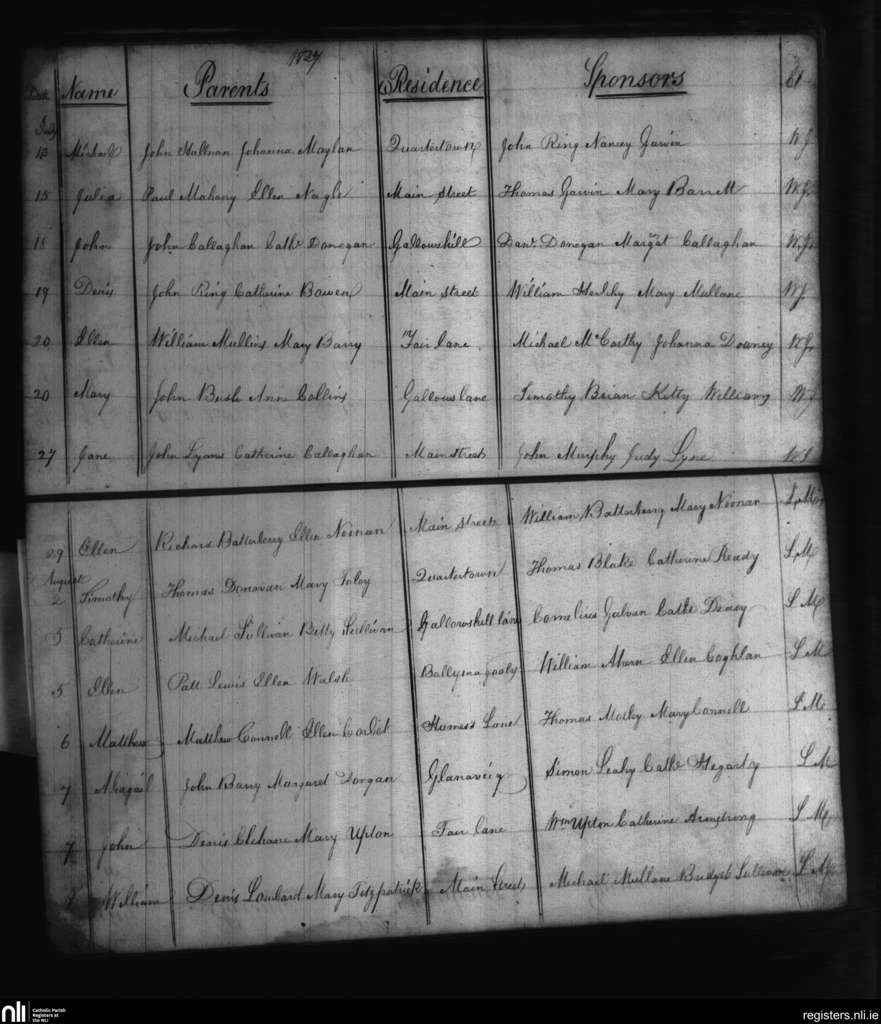 1827
Date Name Parents Residence Sponsors
July
13 Michael John Hallinan Johanna Moylan Quartertown John Ring Nancy Garvin WJ
15 Julia Paul Mahony Ellen Nagle Main Street Thomas Garvin Mary Barrett WJ
18 John John Callaghan Cathe Donegan Gallowshill Danl. Donegan Margat Callaghan WJ
19 Denis John Ring Catharine Bowen Main Street William Herlihy Mary Mullane WJ
20 Ellen William Mullins Mary Barry Fair lane Michael McCarthy Johanna Downey WJ
20 Mary John Bush Ann Collins Gallows lane Timothy Brian Kitty Williams WJ
27 Jane John Lyons Catherine Callaghan Main street John Murphy Judy Lyne WJ
29 Ellen Richard Batterberry Ellen Noonan Main Street William Batterberry Mary Noonan LM
August
2 Timothy Thomas Donovan Mary Foley Quartertown Thomas Blake Catherine Ready LM
5 Catherine Michael Sullivan Betty Sullivan Gallowshill lane Cornelius Galvan Cathe Dencey LM
5 Ellen Patt Lewis Ellen Walsh William Ahern Ellen Coghlan LM
6 Matthew Matthew Connell Ellen Corbet Lane Thomas Mary Connell LM
7 Abigail John Barry Margaret Dorgan Simon Leahy Cathe Hegarty LM
7 John Denis Clehane Mary Upton Fair lane Wm Upton Catherine Armstrong LM
William Denis Lombard Mary Fitzpatrick Main Street Michael Mullane Bridget Sullivan LM
nli
Catholic Parish
Registers at
the NLI
registers.nli.ie